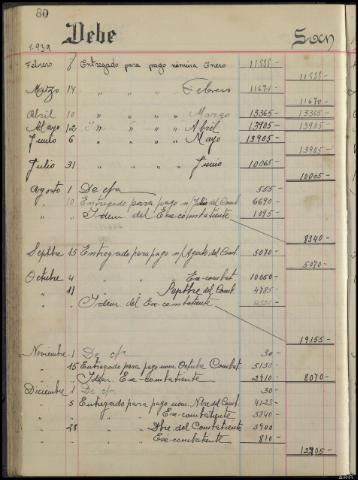 80
Debe
1939
Febrero 7 Entregado para pago nómina Enero 11555-
11555-
Marzo 14 " " " " Febrero 11670-
11670-
Abril 10 " " " " Marzo 13365- 13365-
Mayo 12 " " " " Abril 13905- 13905-
Junio 6 " " " " Mayo 13905-
13905-
Julio 31 " " " " Junio 10065-
10065-
Agosto 1 De cfa 555-
" 10 Entregado para pago n/ Julio del Comb 6690-
" " Idem del Ex-combatiente 1095-
8340-
Septbre 15 Entregado para pago n/ Agosto del Comb 5070-
5070-
Octubre 4 " " " Ex-combat
" 11 " " " Septbre del Comb 4785-
" " Idem del Ex-combatiente
19155-
Noviembre 1 De cfa 30-
" 15 Entregado para pago nom. Octubre Combat 5130-
" " Idem Ex-combatiente 2910- 8070-
Diciembre 1 De cfa 30-
" 5 Entregado para pago nom. Nbre del Comb 4125-
" " " " Ex-combatiente 3240-
" 28 " " Dbre del Combatiente 3900
" " " " Ex-combatiente 810-